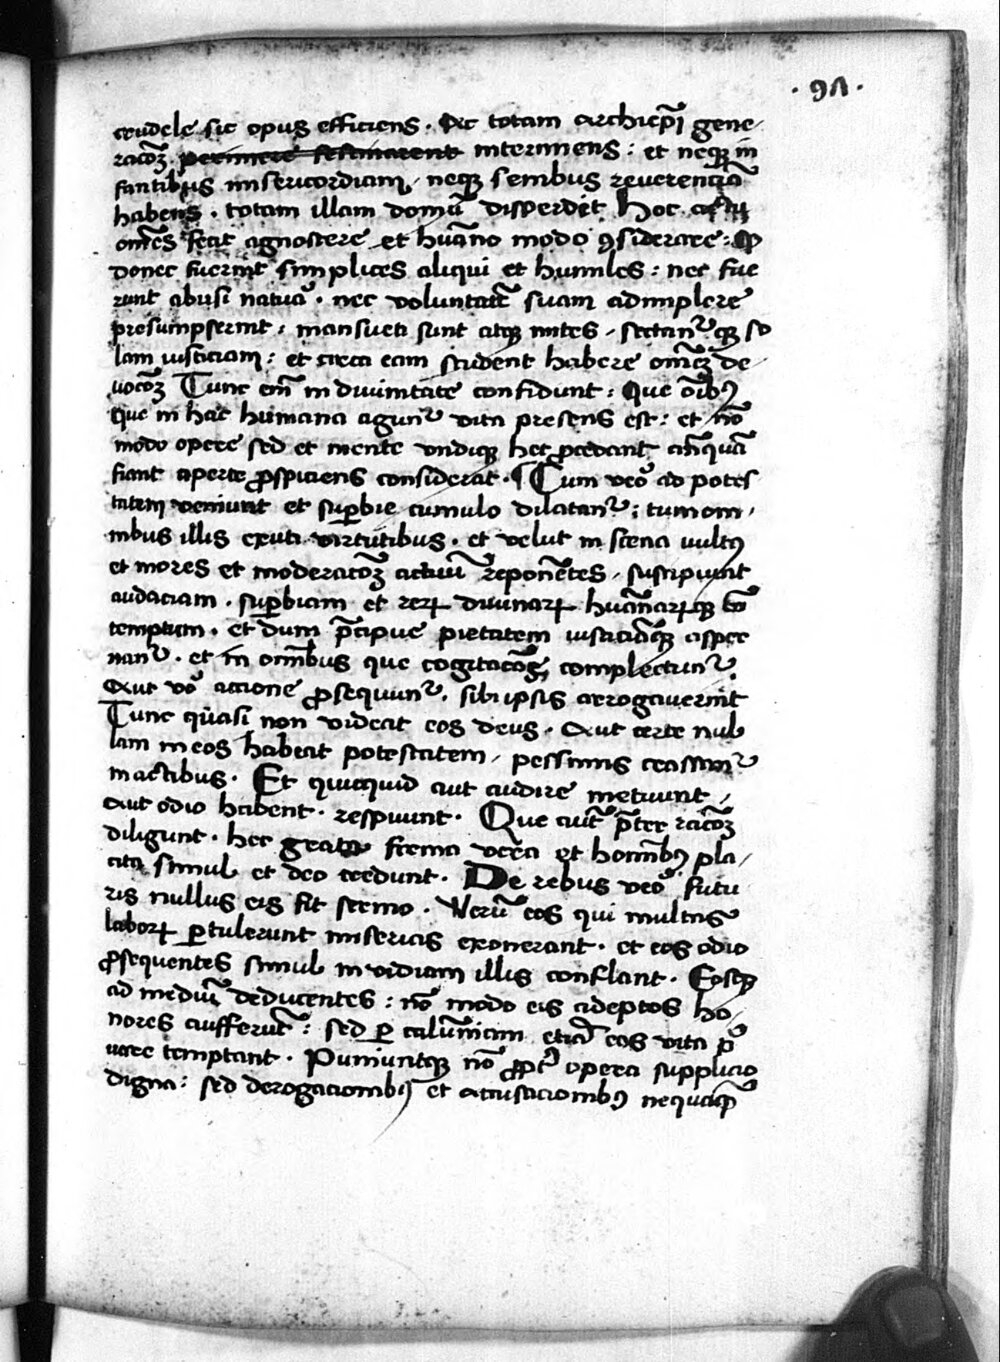 · 97 ·
crudele sic opus efficiens . Ac totam archiep̄i gene-
racōȝ . perimere festinarent interimens : et neqȝ in
fantibus misericordiam , neqȝ senibus reverenciā
habens . totam illam domū disperdit Hoc
om̄es fecit agnoscere et huāno modo ꝯsiderare : Q̄
donec fuerint simplices aliqui et humiles : nec fue
runt abusi natuᵃ . nec voluntatē suam adimplere
presumpserint , mansueti sunt atqȝ mites , sectanᵗ qȝ so
lam iusticiam : et circa eam student habere om̄eȝ de-
vocōȝ Tunc em̄ in divinitate confidunt : Que oībꝰ
que in hac humana agunᵗ vita presens est : et nō
modo opere sed et mente undiqȝ hec p̱cedant
fiant aperte ꝓspiciens considerat . ¶ Cum veᵒ ad potes
tatem veniunt et sup̱bie cumulo dilatanᵗ : tum om-
nibus illis exuti virtutibus . et velut in scena vultꝰ
et mores et moderacōȝ actuū reponentes , suscipiunt
audaciam . sup̱biam et reꝝ divinaꝝ huānaꝝqȝ cō
temptum . et dum p̄cipue pietatem iusticiāqȝ asper
nanᵗ . et in omībus que cogitacōe complectunᵗ .
Aut vᵒ accione ꝓsequunᵗ . sibi ipsis arrogaverint
Tunc quasi non videat eos deus . Aut certe nul
lam in eos habeat potestatem , pessimis crassanᵗ
in actibus . Et quicquid aut audire metuunt ,
Aut odio habent . respuunt . Que autē p̄ter racōȝ
diligunt . hec grata firma vera et homībꝰ pla-
cita simul et deo credunt . De rebus veᵒ futu
ris nullus eis fit sermo . Verū eos qui multas
laboꝝ p̱tulerunt miserias exonerant . et eos odio
ꝓsequentes simul invidiam illis conflant . Eosqȝ
ad mediū deducentes : nō modo eis adeptos ho-
nores aufferūt : sed p̱ calūniam etiā eos vita pⁱ
vare temptant . Puniuntqȝ nō ꝓpt̄ opera supplicio
digna : sed derogacionibꝰ et accusacionibꝰ nequaq̄